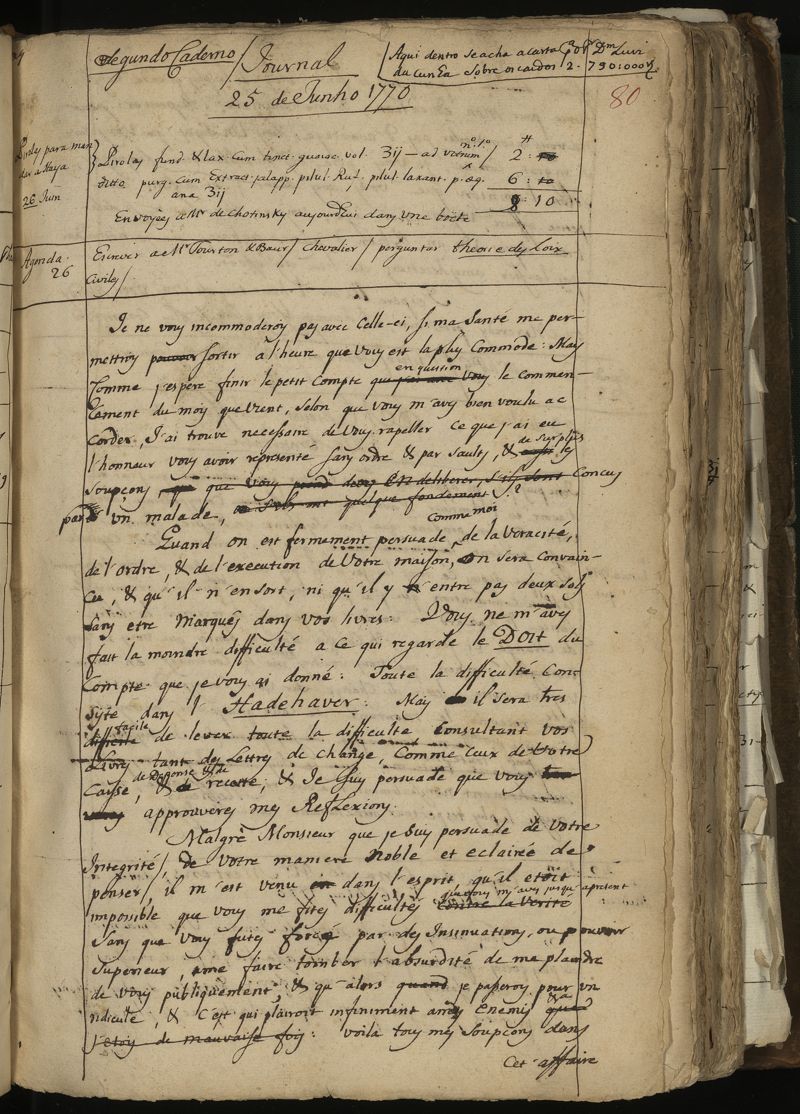 Segundo Caderno / Journal
25 de Junho 1770
Aqui dentro se acha a carta
da Cunha sobre
790:000
80
para man
dar a Haya
26 Jun
fund. & lax. cum tinct. vol. 3ij — ad n.º 1.º / 2 :
ditto purg. cum Extract. jalapp. pilul. Ruf. pilul. laxant. p. æq. 6 :
ana 3ij 8 : 10
Envoyées a Mr de Chotinsky aujourdhui dans une boete
Agenda.
26
Escrever a Mr Tourton & Baur / Chevalier / perguntar theorie des Loix
Civiles /
Je ne vous incommoderois pas avec Celle-ci, si ma Santé me per-
mettroy pouvoir sortir a l'heure que vous est la plus Commode: Mays
Comme j'espere finir le petit Compte en quistion le commen-
cament du moys que vient, selon que vous m'aves bien voulu ac
corder, J'ai trouve necessaire de vous rapeller ce que j'ai eu
l'honneur vous avoir representé sans ordre & par sauts, & de surplus les
soupçons que vous en deliberer, s'ils sont Concus
par un malade, ou s'ils ont quelque fondement ?
Quand on est fermement persuade, Comme moi de la veracité,
de l'ordre, & de l'execution de Votre maison, on sera Convain-
Cu, & qu'il n'en sort, ni qu'il y entre pas deux sols
sans etre Marqués dans vos livres: Vous ne m'aves
fait la moindre difficulté a ce qui regarde le Doit du
Compte que je vous ai donné: Toute la difficulté Con-
syte dans l'Hadehaver: Mays il sera tres
facile
difficile de lever toute la difficulte Consultant vos
Livres tant des Lettres de change, Comme Ceux de Votre
Caysse, de deponse & de recette, & Je suy persuade que vous
approuveres mes Reflexions.
Malgrè Monsieur que je suy persuade de Votre
Integrité / de votre maniere noble et eclairée de
penser / il m'est venu dans l'esprit qu'il etoit
impossible que vous me fites difficultés que vous m'aves jusqu'apresent contre la verité
sans que vous futes forcé par des Insinuations, ou pouvoir
superieur, a me faire tomber l'absurdité de me plaindre
de vous publiquement, & qu'alors quand je passeroy pour un
ridicule, & c'est qui plairoit infiniment a mes Enemis
j'etois de mauvaise foy: voila tous mes soupçons dans
Cet affaire